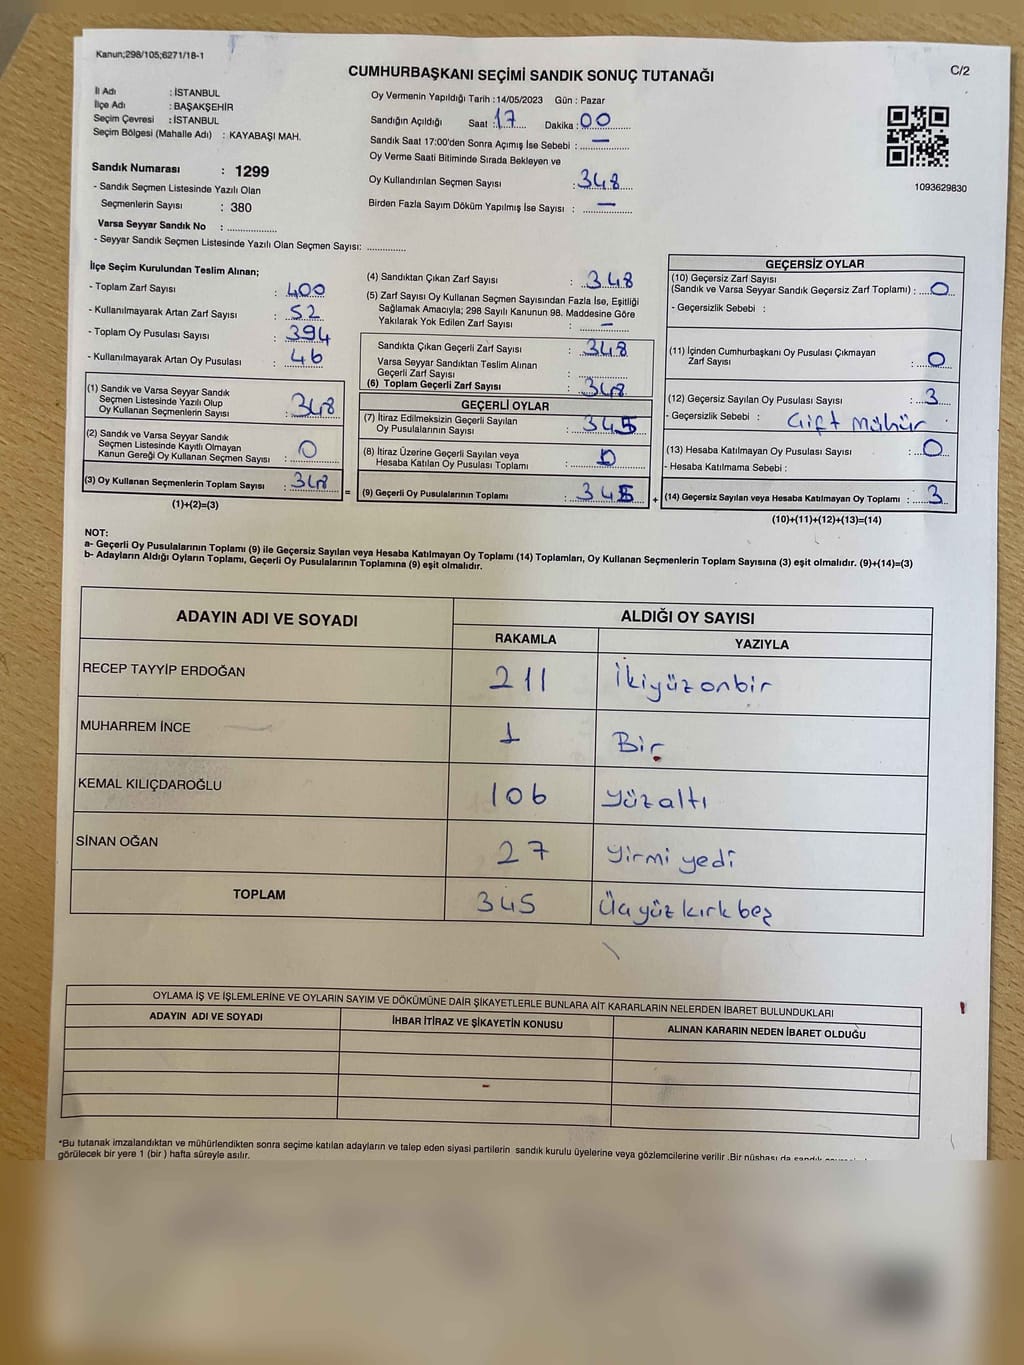 Kanun;298/105;6271/18-1
CUMHURBAŞKANI SEÇİMİ SANDIK SONUÇ TUTANAĞI
C/2
İl Adı : İSTANBUL
İlçe Adı : BAŞAKŞEHİR
Seçim Çevresi : İSTANBUL
Seçim Bölgesi (Mahalle Adı) : KAYABAŞI MAH.
Sandık Numarası : 1299
- Sandık Seçmen Listesinde Yazılı Olan
Seçmenlerin Sayısı : 380
Varsa Seyyar Sandık No : ................
- Seyyar Sandık Seçmen Listesinde Yazılı Olan Seçmen Sayısı: .............
Oy Vermenin Yapıldığı Tarih :14/05/2023 Gün : Pazar
Sandığın Açıldığı Saat : 17 Dakika : 00
Sandık Saat 17:00'den Sonra Açımış İse Sebebi : —
Oy Verme Saati Bitiminde Sırada Bekleyen ve
Oy Kullandırılan Seçmen Sayısı : 348
Birden Fazla Sayım Döküm Yapılmış İse Sayısı : —
1093629830
İlçe Seçim Kurulundan Teslim Alınan;
- Toplam Zarf Sayısı : 400
- Kullanılmayarak Artan Zarf Sayısı : 52
- Toplam Oy Pusulası Sayısı : 394
- Kullanılmayarak Artan Oy Pusulası : 46
(1) Sandık ve Varsa Seyyar Sandık
Seçmen Listesinde Yazılı Olup
Oy Kullanan Seçmenlerin Sayısı : 348
(2) Sandık ve Varsa Seyyar Sandık
Seçmen Listesinde Kayıtlı Olmayan
Kanun Gereği Oy Kullanan Seçmen Sayısı : 0
(3) Oy Kullanan Seçmenlerin Toplam Sayısı : 348
(1)+(2)=(3)
=
(4) Sandıktan Çıkan Zarf Sayısı : 348
(5) Zarf Sayısı Oy Kullanan Seçmen Sayısından Fazla İse, Eşitliği
Sağlamak Amacıyla; 298 Sayılı Kanunun 98. Maddesine Göre
Yakılarak Yok Edilen Zarf Sayısı : —
Sandıkta Çıkan Geçerli Zarf Sayısı : 348
Varsa Seyyar Sandıktan Teslim Alınan
Geçerli Zarf Sayısı : ................
(6) Toplam Geçerli Zarf Sayısı : 348
GEÇERLİ OYLAR
(7) İtiraz Edilmeksizin Geçerli Sayılan
Oy Pusulalarının Sayısı : 345
(8) İtiraz Üzerine Geçerli Sayılan veya
Hesaba Katılan Oy Pusulası Toplamı : 0
(9) Geçerli Oy Pusulalarının Toplamı : 345
+
GEÇERSİZ OYLAR
(10) Geçersiz Zarf Sayısı
(Sandık ve Varsa Seyyar Sandık Geçersiz Zarf Toplamı) : 0
- Geçersizlik Sebebi :
(11) İçinden Cumhurbaşkanı Oy Pusulası Çıkmayan
Zarf Sayısı : 0
(12) Geçersiz Sayılan Oy Pusulası Sayısı : 3
- Geçersizlik Sebebi : Çift Mühür
(13) Hesaba Katılmayan Oy Pusulası Sayısı : 0
- Hesaba Katılmama Sebebi :
(14) Geçersiz Sayılan veya Hesaba Katılmayan Oy Toplamı : 3
(10)+(11)+(12)+(13)=(14)
NOT:
a- Geçerli Oy Pusulalarının Toplamı (9) ile Geçersiz Sayılan veya Hesaba Katılmayan Oy Toplamı (14) Toplamları, Oy Kullanan Seçmenlerin Toplam Sayısına (3) eşit olmalıdır. (9)+(14)=(3)
b- Adayların Aldığı Oyların Toplamı, Geçerli Oy Pusulalarının Toplamına (9) eşit olmalıdır.
ADAYIN ADI VE SOYADI ALDIĞI OY SAYISI
RAKAMLA YAZIYLA
RECEP TAYYİP ERDOĞAN 211 İkiyüzonbir
MUHARREM İNCE 1 Bir
KEMAL KILIÇDAROĞLU 106 Yüzaltı
SİNAN OĞAN 27 Yirmi yedi
TOPLAM 345 Üçyüz kırk beş
OYLAMA İŞ VE İŞLEMLERİNE VE OYLARIN SAYIM VE DÖKÜMÜNE DAİR ŞİKAYETLERLE BUNLARA AİT KARARLARIN NELERDEN İBARET BULUNDUKLARI
ADAYIN ADI VE SOYADI İHBAR İTİRAZ VE ŞİKAYETİN KONUSU ALINAN KARARIN NEDEN İBARET OLDUĞU
*Bu tutanak imzalandıktan ve mühürlendikten sonra seçime katılan adayların ve talep eden siyasi partilerin sandık kurulu üyelerine veya gözlemcilerine verilir .Bir nüshası da
görülecek bir yere 1 (bir ) hafta süreyle asılır.